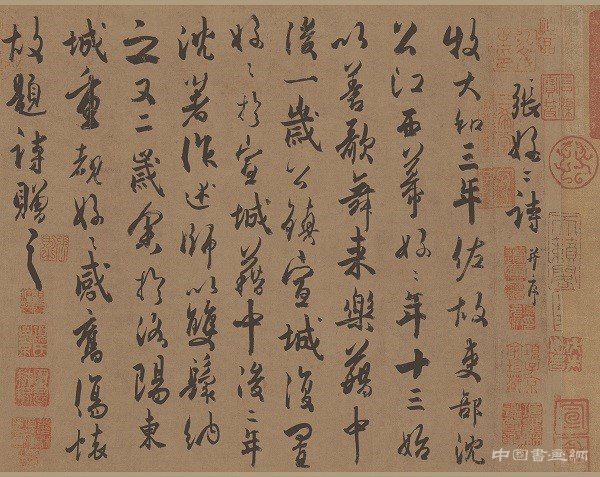 張好〻詩 并序
牧大和三年佐故吏部沈
公江西幕好〻年十三始
以善歌舞来樂籍中
後一歲公鎮宣城復置
好〻於宣城籍中後二年
沈著作述師以雙鬟納
之又二歲余於洛陽東
城重覩好〻感舊傷懷
故題詩贈之
中国書画網